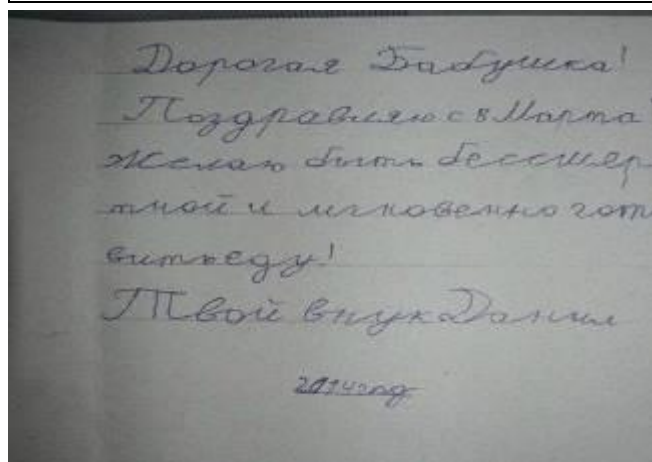 Дорогая Бабушка!
Поздравляю с 8 Марта
Желаю быть бессмер
тной и мгновенно гото
вить еду!
Твой внук Данил
2014 год